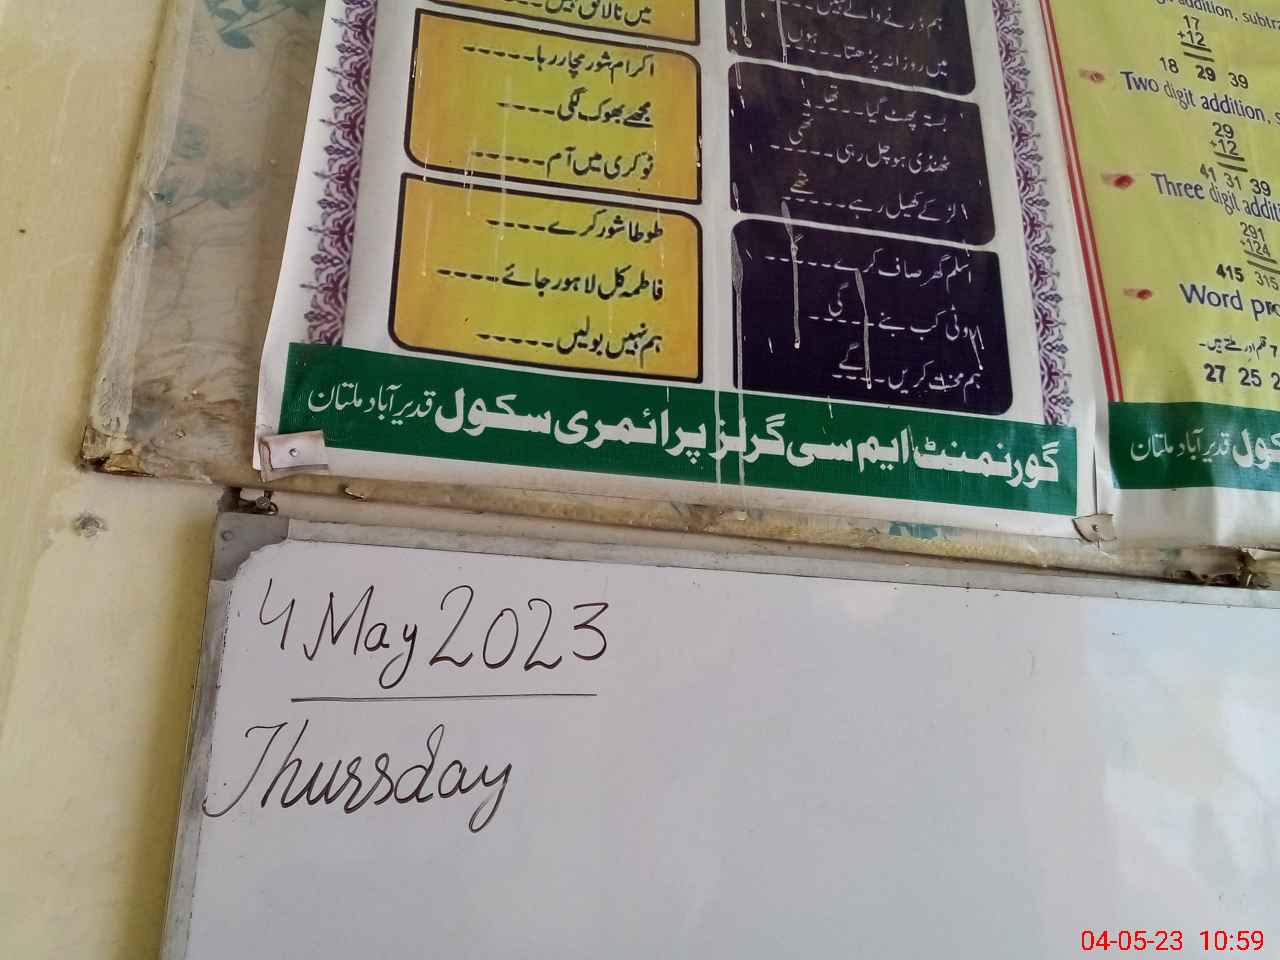 میں نالائق نہیں-----
اکرام شور مچا رہا-----
مجھے بھوک لگی----
ٹوکری میں آم-----
طوطا شور کرے----
فاطمہ کل لاہور جائے-----
ہم نہیں بولیں-----
ہم ڈرنے والے نہیں
میں روزانہ پڑھتا-----ہوں
بستہ پھٹ گیا---تھا
ٹھنڈی ہوا چل رہی-----تھی
لڑکے کھیل رہے----تھے
اسلم گھر صاف کرے-----گا
روٹی کب بنے----گی
ہم محنت کریں----گے
گورنمنٹ ایم سی گرلز پرائمری سکول قدیر آباد ملتان
addition, subtra
17
+12
18 29 39
Two digit addition, s
29
+12
41 31 39
Three digit additi
291
+124
415 315
Word pro
27 25 2
کول قدیر آباد ملتان
4 May 2023
Thursday
04-05-23 10:59